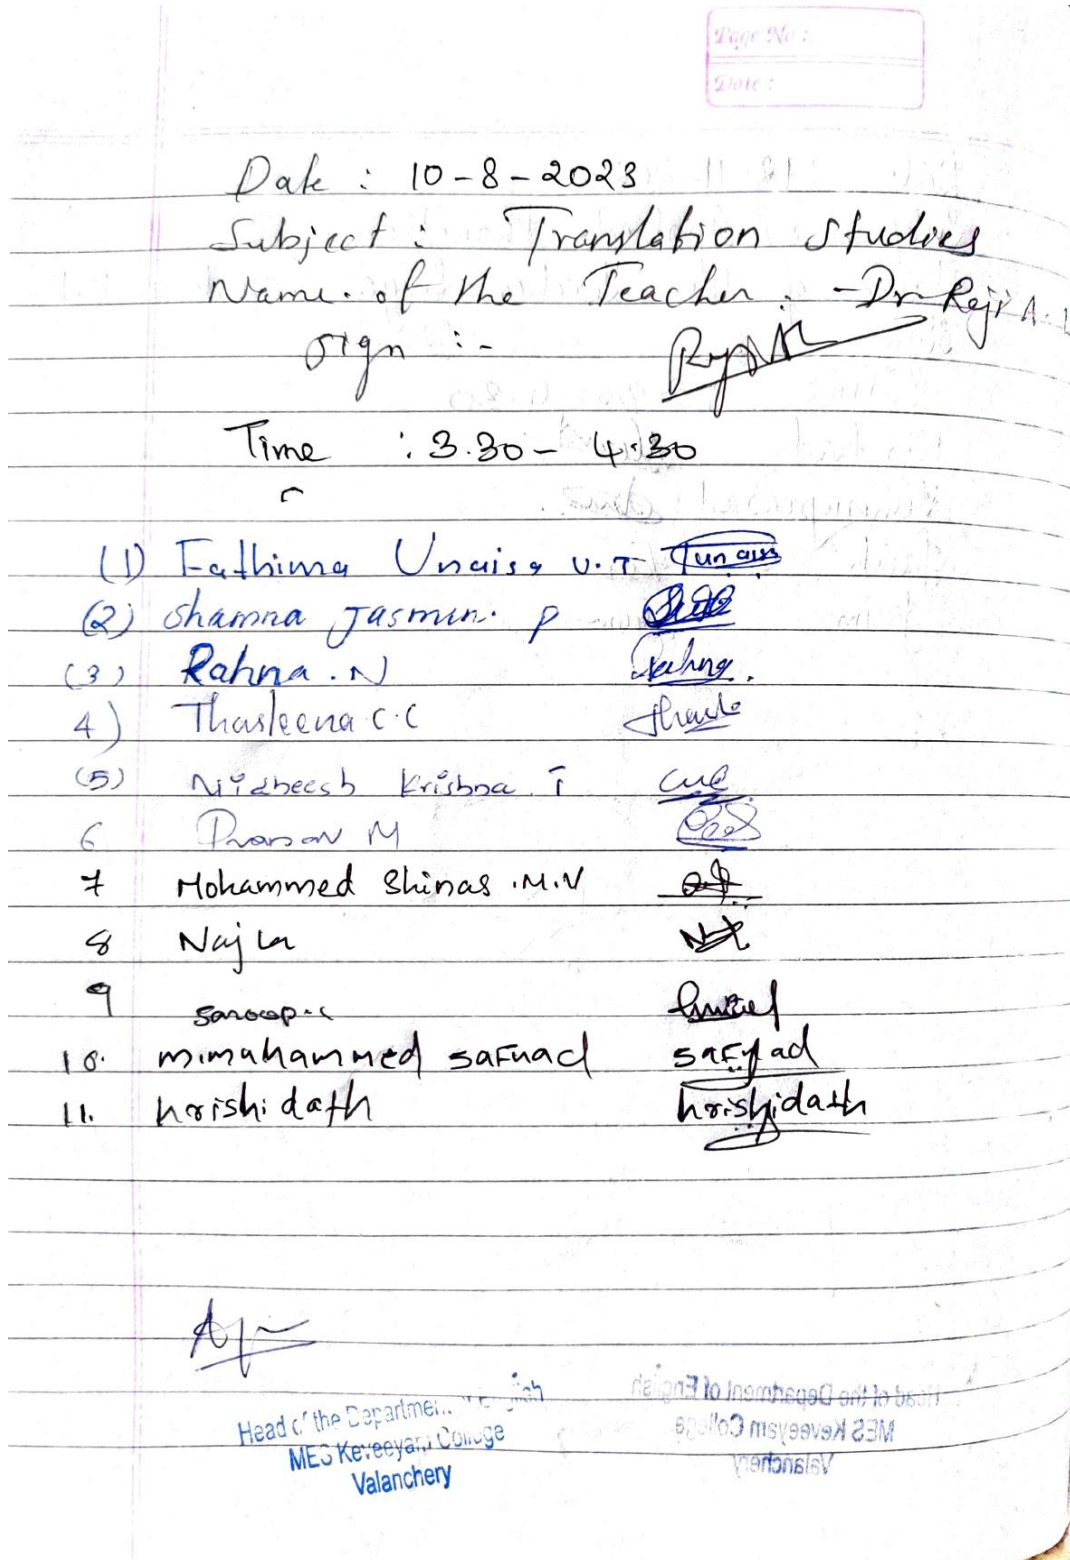 Page No :
Date :
Date : 10-8-2023
Subject : Translation Studies
Name of the Teacher : - Dr Reji A.
Sign :-
Time : 3.30 - 4.30
(1) Fathima Unaisa U.T
(2) Shamna Jasmin. P
(3) Rahna . N Rahna.
4) Thasleena C.C
(5) Nidheesh Krishna T
6 M
7 Mohammed Shinas .M.V
8 Najla
9 Saroop.c
10. m.muhammed safuad
11. hrishidath hrishidath
Head of the Department of English
MES Keveeyam College
Valanchery
Head of the Department of English
MES Keveeyam College
Valanchery